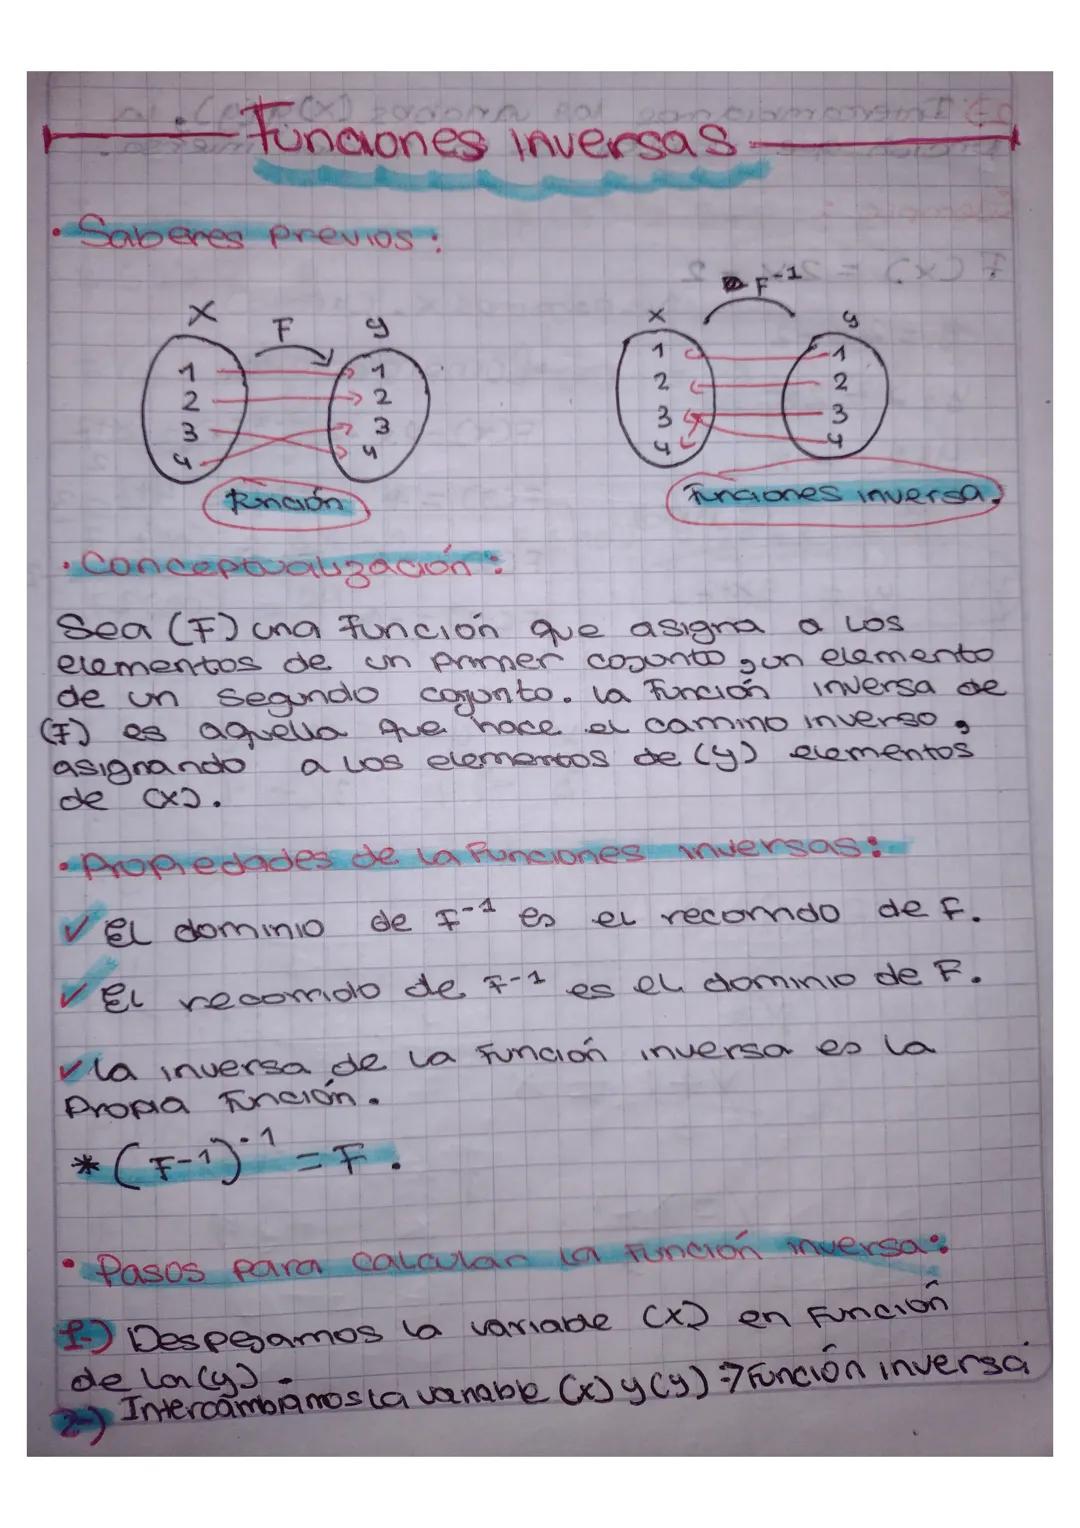 Funciones inversas
• Saberes previos:
x F y
1 1
2 2
3 3
4 4
Función
F-1
x y
1 1
2 2
3 3
4 4
Funciones inversa.
• Conceptualización:
Sea (F) una función que asigna a los
elementos de un primer cojunto, un elemento
de un segundo cojunto. La Función inversa de
(F) es aquella que hace el camino inverso,
asignando a los elementos de (y) elementos
de (x).
• Propiedades de la Funciones inversas:
✓ El dominio de F-1 es el recorrido de F.
✓ El recorrido de F-1 es el dominio de F.
✓ la inversa de la función inversa es la
Propia Función.
* (F-1)-1 = F.
• Pasos para calcular la función inversa:
1-) Despejamos la variable (x) en función
de la (y).
2-) Intercambiamos la variable (x) y (y) → Función inversa